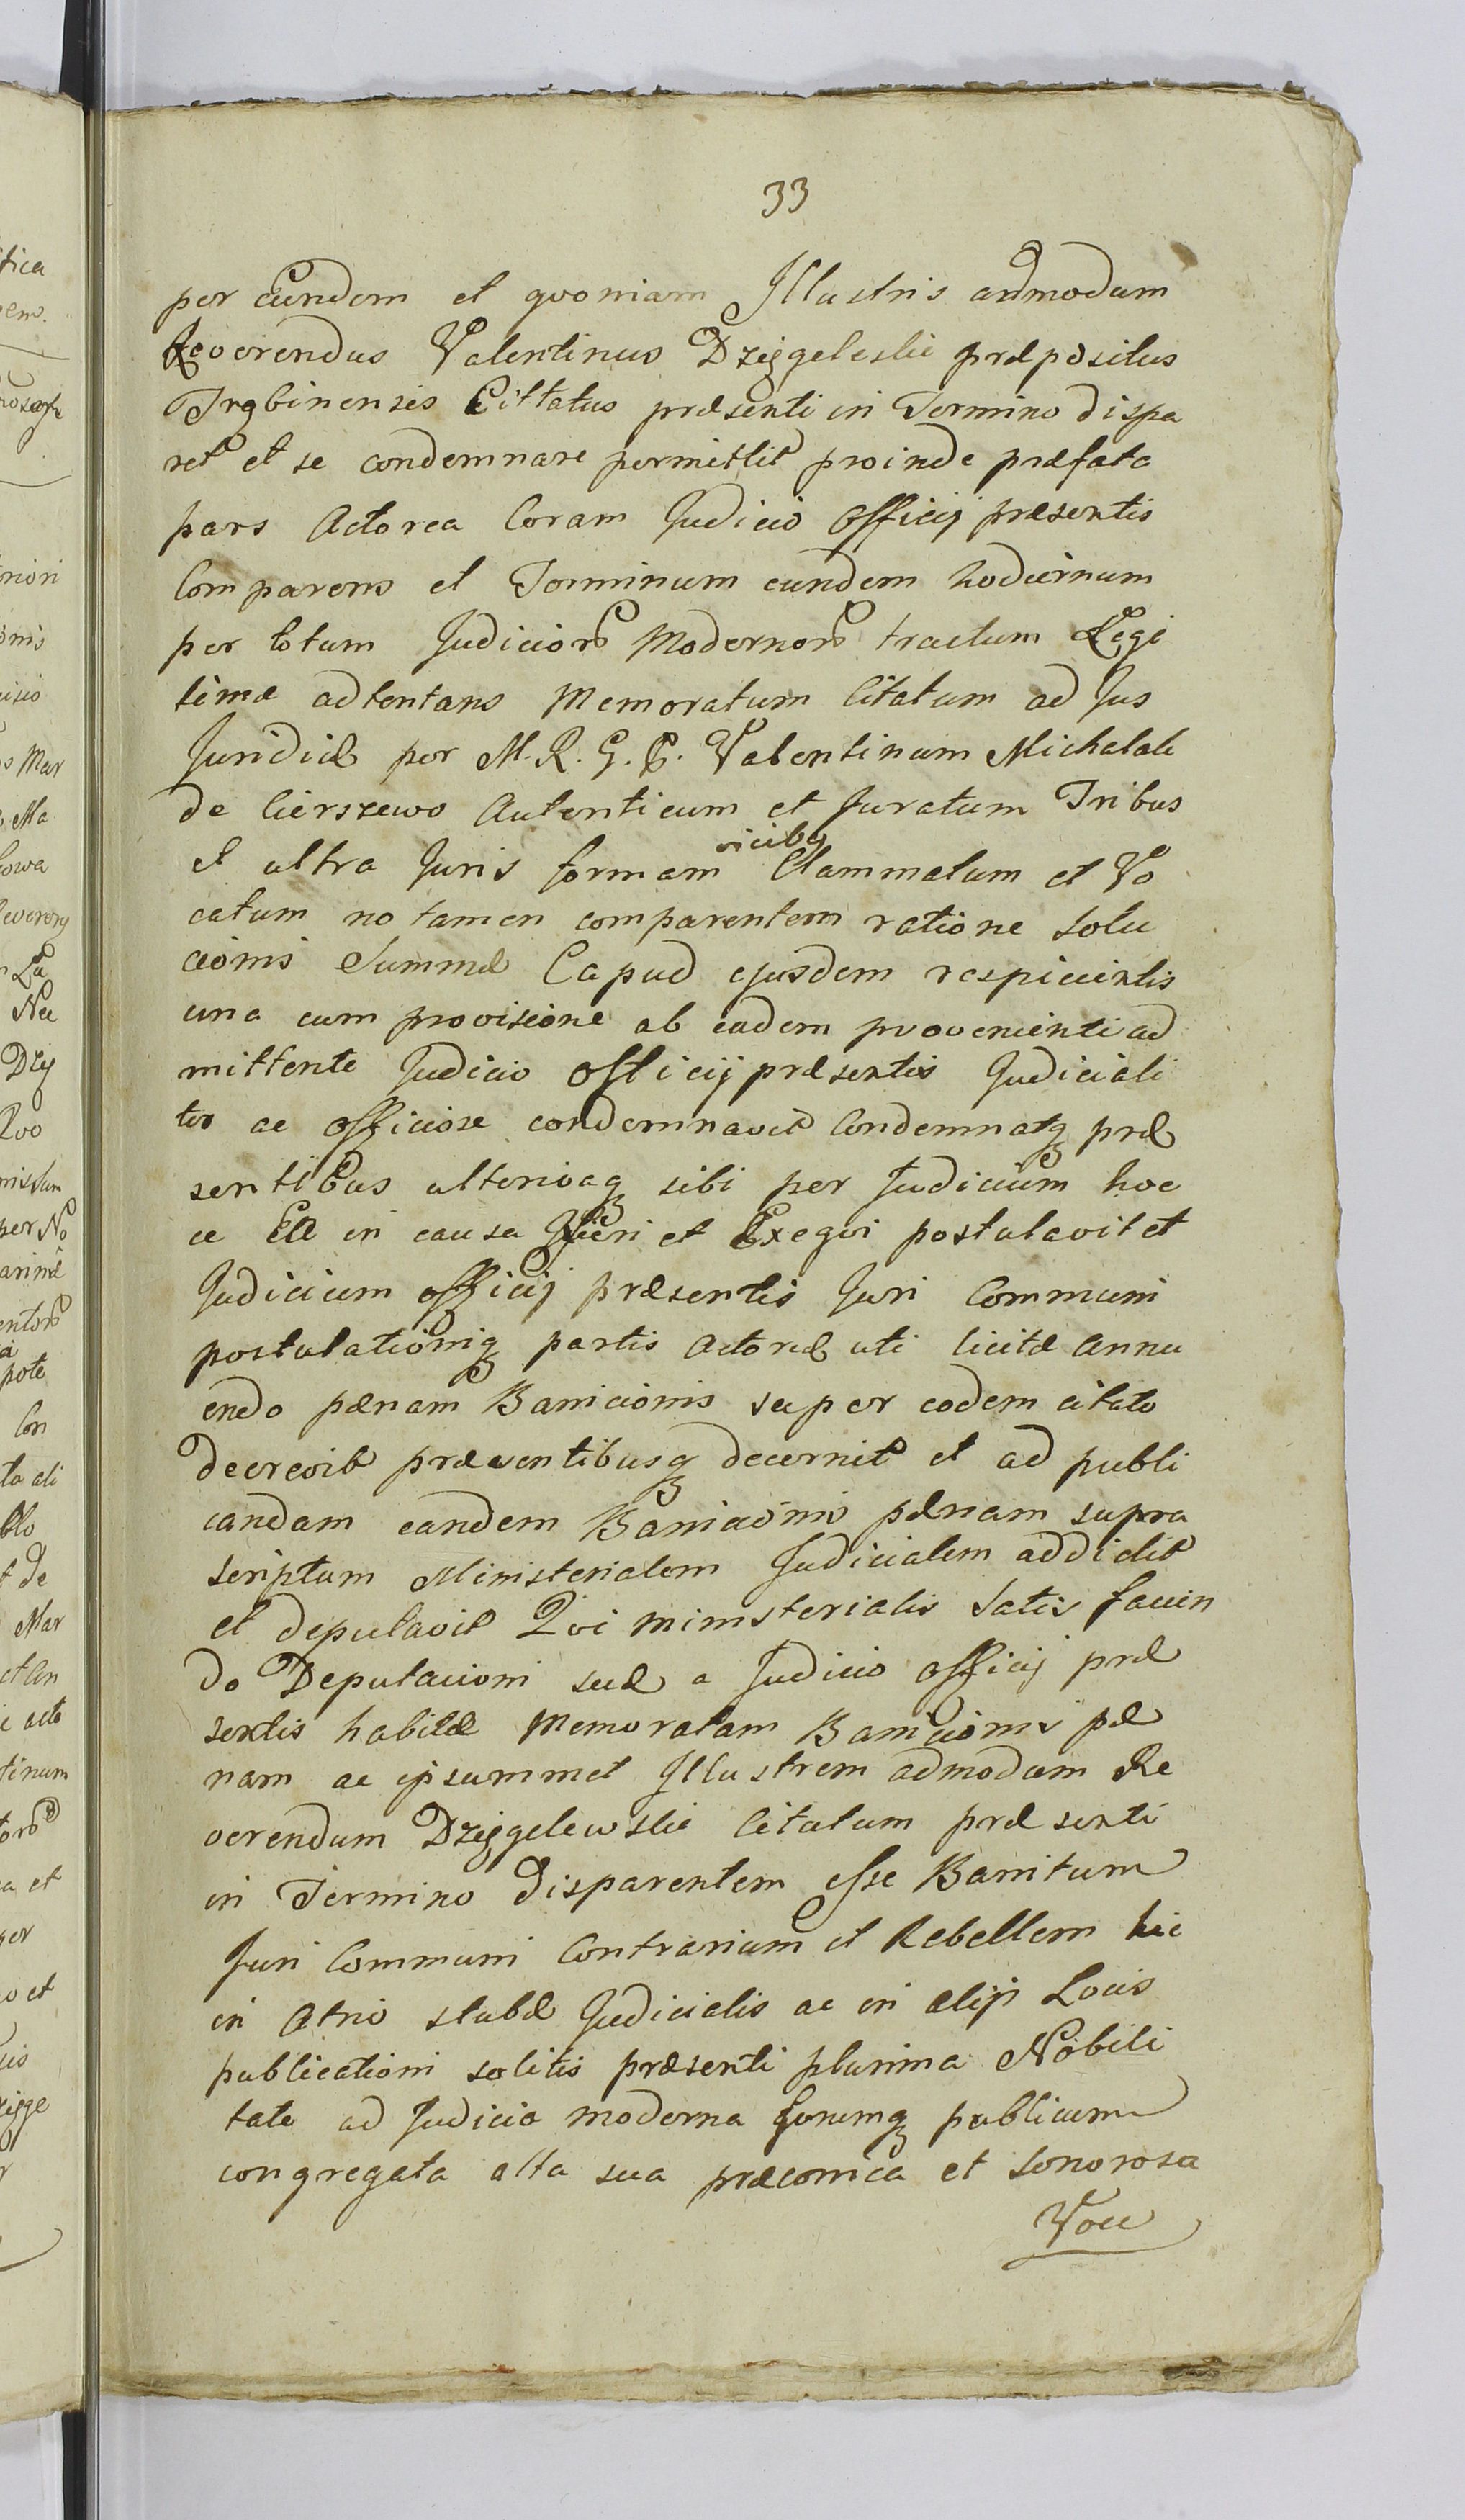 33
per Eundem et qvoniam Illustris admodum
Reverendus Valentinus Dzięgeleski præpositus
Trąbinensis Cittatus præsenti in Termino dispa
ret et se condemnare permittit proinde præfata
pars Actorea Coram Judicio Officij præsentis
Comparens et Terminum eundem hodiernum
per totum Judicior Modernor tractum Legi
time adtentans Memoratum Citatum ad Jus
Juridice per M. R. G. P. Valentinum Michalak
de Cierszewo Autenticum et Juratum Tribus
et ultra Juris formam vicibq Clammatum et Vo
catum no tamen comparentem ratione Solu
cionis Summæ Capud ejusdem respicientis
una cum provisione ab eadem provenienti ad
mittente Judicio Officij præsentis Judiciali
ter ac officiose condemnavit Condemnatq præ
sentibus ulteriusq sibi per Judicium hoc
ce Ea in causa Fieri et Exeqvi postulavit et
Judicium officij præsentis Juri Communi
postulationiq partis Actoreæ uti licitæ Annu
endo pænam Banicionis super eodem citato
decrevit præsentibusq decernit et ad publi
candam eandem Banicionis pænam supra
scriptum Ministerialem Judicialem addidit
et deputavit Qvi ministerialis Satis facien
do Deputacioni suæ a Judicio officij præ
sentis habitæ Memoratam Banicionis pæ
nam ac ipsummet Illustrem admodum Re
verendum Dzięgelewski Citatum præsenti
in Termino Disparentem esse Banitum
Juri Communi Contrarium et Rebellem hic
in Atrio stubæ Judicialis ac in alijs Locis
publicationi solitis præsenti plurima Nobili
tate ad Judicia moderna forumq publicum
congregata alta sua præconica et Sonorosa
Voce